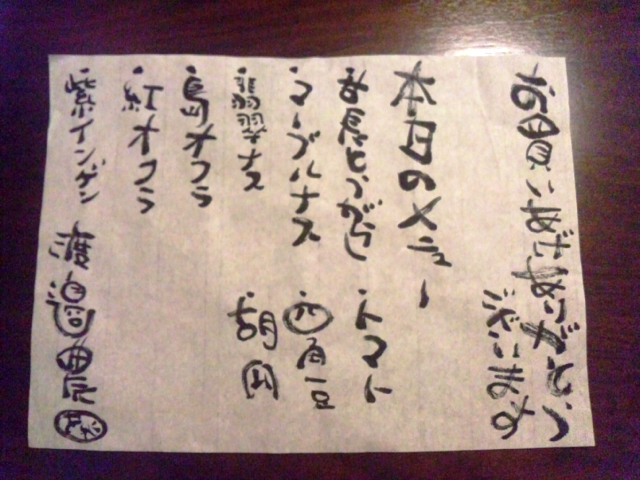 お買いあげありがとう
ございます
本日のメニュー
・万長とうがらし
・トマト
・マーブルナス
・四角豆
・翡翠ナス
・胡瓜
・島オクラ
・紅オクラ
・紫インゲン
渡邉農園